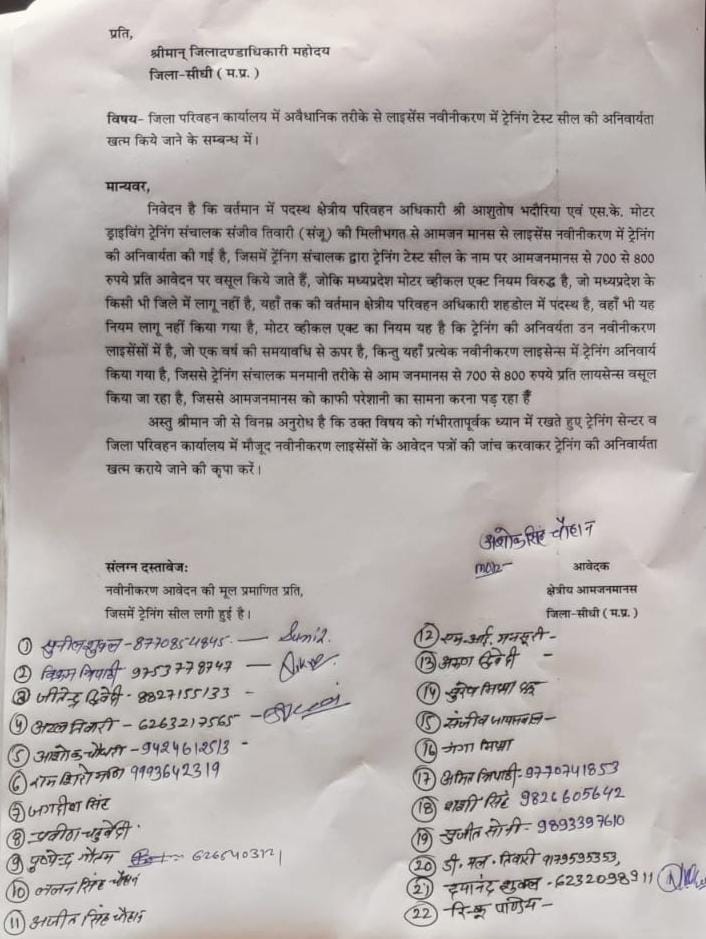 प्रति,
श्रीमान् जिलादण्डाधिकारी महोदय
जिला-सीधी ( म.प्र. )
विषय- जिला परिवहन कार्यालय में अवैधानिक तरीके से लाइसेंस नवीनीकरण में ट्रेनिंग टेस्ट सील की अनिवार्यता
खत्म किये जाने के सम्बन्ध में।
मान्यवर,
निवेदन है कि वर्तमान में पदस्थ क्षेत्रीय परिवहन अधिकारी श्री आशुतोष भदौरिया एवं एस.के. मोटर
ड्राइविंग ट्रेनिंग संचालक संजीव तिवारी (संजू) की मिलीभगत से आमजन मानस से लाइसेंस नवीनीकरण में ट्रेनिंग
की अनिवार्यता की गई है, जिसमें ट्रेंनिग संचालक द्वारा ट्रेनिंग टेस्ट सील के नाम पर आमजनमानस से 700 से 800
रुपये प्रति आवेदन पर वसूल किये जाते हैं, जोकि मध्यप्रदेश मोटर व्हीकल एक्ट नियम विरुद्ध है, जो मध्यप्रदेश के
किसी भी जिले में लागू नहीं है, यहाँ तक की वर्तमान क्षेत्रीय परिवहन अधिकारी शहडोल में पदस्थ है, वहाँ भी यह
नियम लागू नहीं किया गया है, मोटर व्हीकल एक्ट का नियम यह है कि ट्रेनिंग की अनिवर्यता उन नवीनीकरण
लाइसेंसों में है, जो एक वर्ष की समयावधि से ऊपर है, किन्तु यहाँ प्रत्येक नवीनीकरण लाइसेन्स में ट्रेनिंग अनिवार्य
किया गया है, जिससे ट्रेनिंग संचालक मनमानी तरीके से आम जनमानस से 700 से 800 रुपये प्रति लायसेन्स वसूल
किया जा रहा है, जिससे आमजनमानस को काफी परेशानी का सामना करना पड़ रहा हैं
अस्तु श्रीमान जी से विनम्र अनुरोध है कि उक्त विषय को गंभीरतापूर्वक ध्यान में रखते हुए ट्रेनिंग सेन्टर व
जिला परिवहन कार्यालय में मौजूद नवीनीकरण लाइसेंसों के आवेदन पत्रों की जांच करवाकर ट्रेनिंग की अनिवार्यता
खत्म कराये जाने की कृपा करें।
अशोक सिंह चौहान
संलग्न दस्तावेज:
नवीनीकरण आवेदन की मूल प्रमाणित प्रति,
जिसमें ट्रेनिंग सील लगी हुई है।
आवेदक
क्षेत्रीय आमजनमानस
जिला-सीधी ( म.प्र. )
① सुनील शुक्ल - 8770854845 - Sunil
② विक्रम त्रिपाठी 9753778747 -
③ जीतेन्द्र द्विवेदी - 8827155133 -
④ तिवारी - 6263217565 -
⑤ अशोक - 9424612513 -
⑥ राम शिरोमणि 9993642319
⑦ जगदीश सिंह
⑧ प्रवीण चतुर्वेदी
⑨ पुष्पेन्द्र गौतम
⑩ ललन सिंह चौहान
⑪ अजीत सिंह चौहान
⑫ एम.आई. मनसूरी -
⑬ अरुण द्विवेदी -
⑭ सुरेश मिश्रा
⑮ संजीव जायसवाल -
⑯ मिश्रा
⑰ अमित त्रिपाठी - 9770741853
⑱ शशी सिंह 9826605642
⑲ सुजीत सोनी - 9893397610
⑳ डी. एल. तिवारी 9179595353,
㉑ दयानंद शुक्ल - 6232098911
㉒ रिंकू पाण्डेय -